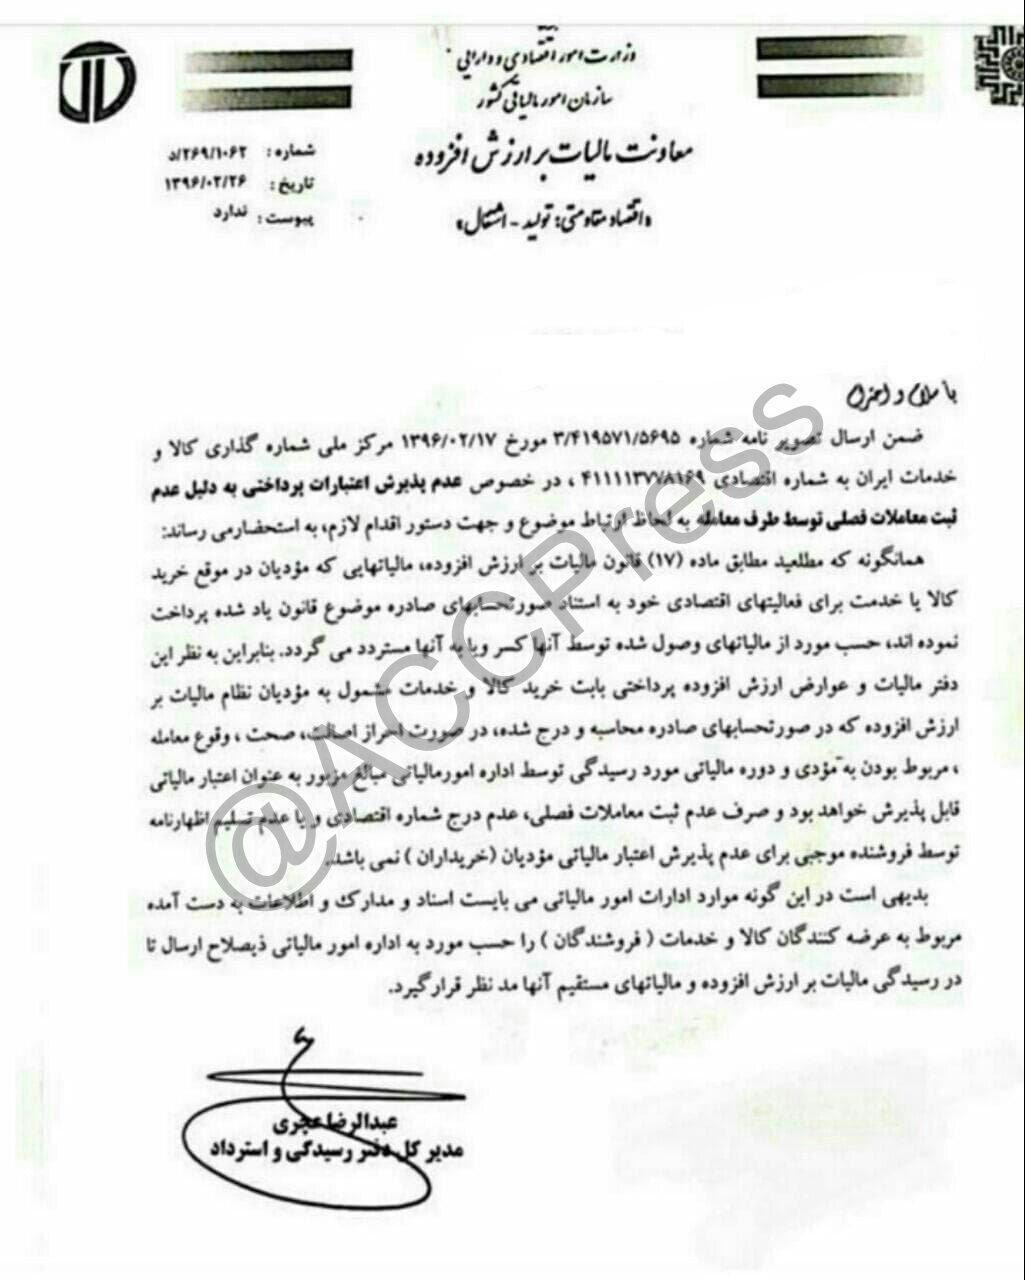 وزارت امور اقتصادی و دارایی
سازمان امور مالیاتی کشور
معاونت مالیات بر ارزش افزوده
«اقتصاد مقاومتی: تولید - اشتغال»
شماره : ۲۶۹/۱۰۶۲/د
تاریخ : ۱۳۹۶/۰۲/۲۶
پیوست : ندارد
با سلام و احترام
ضمن ارسال تصویر نامه شماره ۳/۴۱۹۵۷۱/۵۶۹۵ مورخ ۱۳۹۶/۰۲/۱۷ مرکز ملی شماره گذاری کالا و
خدمات ایران به شماره اقتصادی ۴۱۱۱۱۳۷۷۸۱۶۹ ، در خصوص عدم پذیرش اعتبارات پرداختی به دلیل عدم
ثبت معاملات فصلی توسط طرف معامله به لحاظ ارتباط موضوع و جهت دستور اقدام لازم، به استحضارمی رساند:
همانگونه که مطلعید مطابق ماده (۱۷) قانون مالیات بر ارزش افزوده، مالیاتهایی که مؤدیان در موقع خرید
کالا یا خدمت برای فعالیتهای اقتصادی خود به استناد صورتحسابهای صادره موضوع قانون یاد شده پرداخت
نموده اند، حسب مورد از مالیاتهای وصول شده توسط آنها کسر ویا به آنها مسترد می گردد. بنابراین به نظر این
دفتر مالیات و عوارض ارزش افزوده پرداختی بابت خرید کالا و خدمات مشمول به مؤدیان نظام مالیات بر
ارزش افزوده که در صورتحسابهای صادره محاسبه و درج شده، در صورت احراز اصالت، صحت ، وقوع معامله
، مربوط بودن به مؤدی و دوره مالیاتی مورد رسیدگی توسط اداره امورمالیاتی مبالغ مزبور به عنوان اعتبار مالیاتی
قابل پذیرش خواهد بود و صرف عدم ثبت معاملات فصلی، عدم درج شماره اقتصادی و یا عدم تسلیم اظهارنامه
توسط فروشنده موجبی برای عدم پذیرش اعتبار مالیاتی مؤدیان (خریداران ) نمی باشد.
بدیهی است در این گونه موارد ادارات امور مالیاتی می بایست اسناد و مدارک و اطلاعات به دست آمده
مربوط به عرضه کنندگان کالا و خدمات ( فروشندگان ) را حسب مورد به اداره امور مالیاتی ذیصلاح ارسال تا
در رسیدگی مالیات بر ارزش افزوده و مالیاتهای مستقیم آنها مد نظر قرارگیرد.
عبدالرضا عجری
مدیر کل دفتر رسیدگی و استرداد
@ACCPress